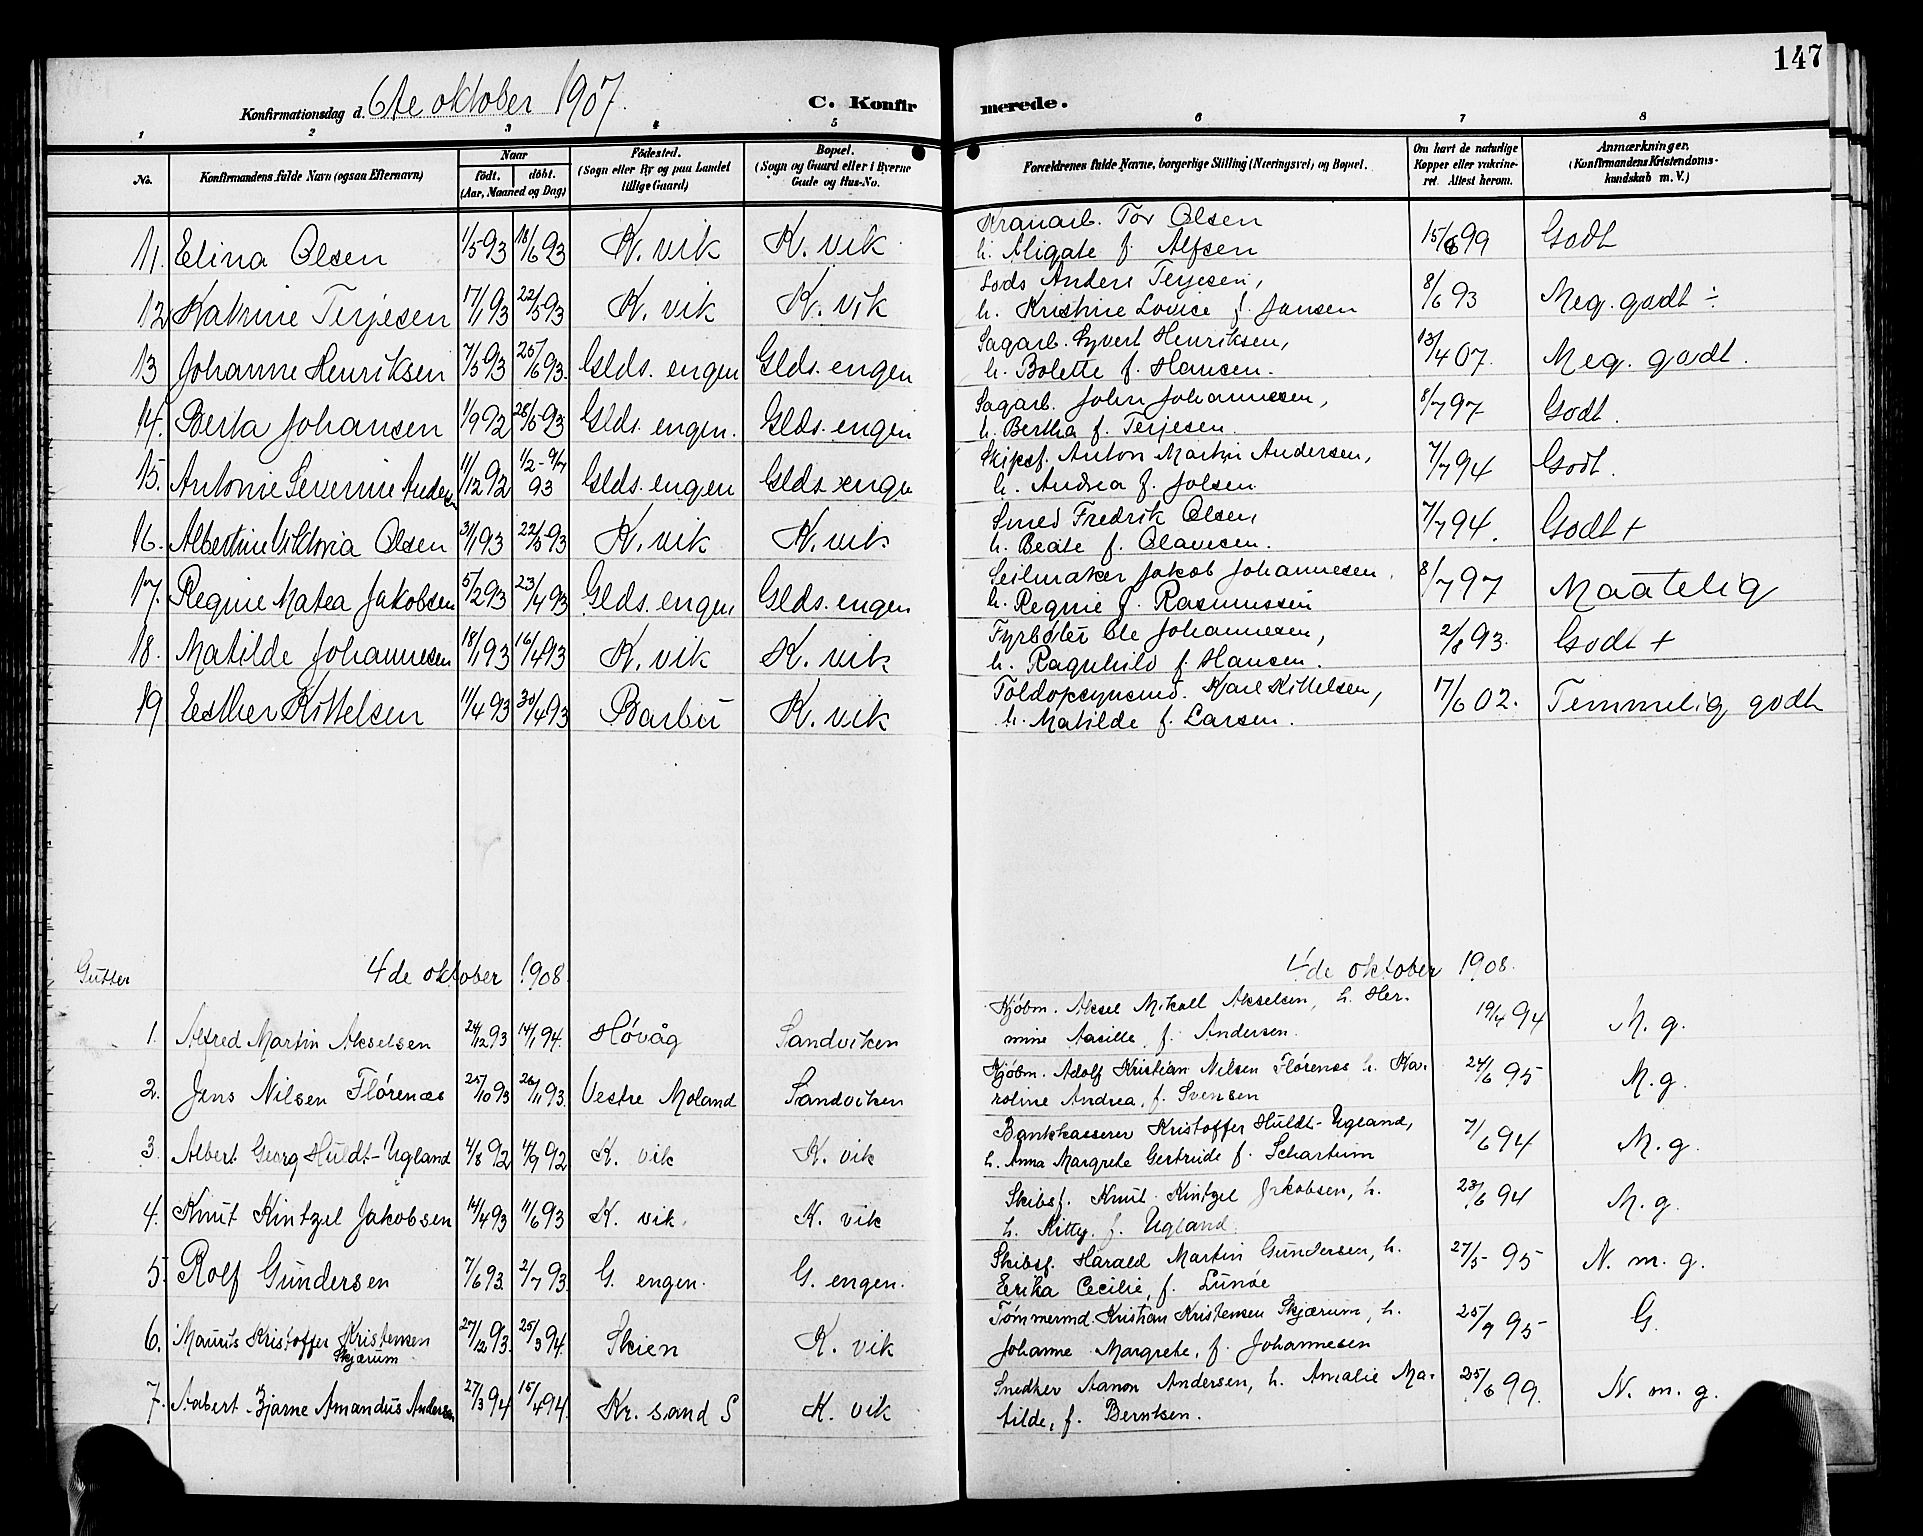 147
Konfirmationsdag d. 6te oktober 1907. C. Konfirmerede.
1 2 3 4 5 6 7 8
No. Konfirmandens fulde Navn (ogsaa Efternavn) Naar födt. döbt. (Aar, Maaned og Dag) Födested. (Sogn eller By og paa Landet tillige Gaard) Bopæl. (Sogn og Gaard eller i Byerne Gade og Hus-No. Forældrenes fulde Navne, borgerlige Stilling (Næringsvei) og Bopæl. Om havt de naturlige Kopper eller vakcineret. Attest herom. Anmærkninger. (Konfirmandens Kristendomskundskab m. V.)
11. Elina Olsen 1/5 93 18/6 93 K. vik K. vik Kranarb. Tor Olsen
h. Aligate f. Alfsen 15/6 99 Godt
12 Katrine Terjesen 17/1 93 22/5 93 K. vik K. vik Lods Anders Terjesen,
h. Kristine Louise f. Jansen 8/6 93 Meg. godt ÷
13 Johanne Henriksen 7/5 93 25/6 93. Glds. engen Glds. engen Sagarb. Syvert Henriksen,
h. Bolette f. Hansen. 13/4 07. Meg. godt.
14. Berta Johansen 1/9 92 28/5 93 Glds. engen. Glds. engen Sagarb. John Johannessen,
h. Bertha f. Terjesen. 8/7 97 Godt.
15. Antonie Severine Andersen 11/12 92 1/2 - 9/7 93 Glds. engen Glds. engen Skipsf. Anton Martin Andersen,
h. Andrea f. Jolsen 7/7 94 Godt.
16. Albertine Viktoria Olsen 31/1 93 22/5 93 K. vik K. vik Smed Fredrik Olsen,
h. Beate f. Olavesen. 7/7 94. Godt +
17. Regine Matea Jakobsen 5/2 93 23/4 93 Glds. engen Glds. engen Seilmaker Jakob Johannesen,
h. Regine f. Rasmussen 8/7 97 Maatelig
18. Matilde Johannesen 18/1 93 16/4 93 K. vik K. vik Fyrbøter Ole Johannesen,
h. Ragnhild f. Hansen. 2/8 93. Godt +
19 Esther Kittelsen 11/4 93 30/4 93 Barbu K. vik Toldopsynsmd. Karl Kittelsen,
h. Matilde f. Larsen. 17/6 02. Temmelig godt
Gutter 4de oktober 1908 4de oktober 1908.
1. Alfred Martin Akselsen 24/12 93 14/1 94. Høvåg Sandviken Kjøbm. Aksel Mikall Akselsen, h. Her-
mine Aasille, f. Andersen. 19/4 94 M. g.
2. Jens Nilsen Flørenæs 25/10 93 26/11 93. Vestre Moland Sandviken Kjøbm. Adolf Kristian Nilsen Flørenæs h. Ka-
roline Andrea, f. Svensen 24/6 95 M. g.
3. Albert Georg Huldt-Ugland 4/8 92 14/9 92 K. vik K. vik Bankkasserer Kristoffer Huldt-Ugland,
h. Anna Margrete Gertrude f. Schartum 7/6 94 M. g.
4. Knut Kintzel Jakobsen 14/4 93 11/6 93 K. vik. K. vik Skibsf. Knut Kintzel Jakobsen, h.
h. Kitty. f. Ugland. 23/6 94 M. g.
5. Rolf Gundersen 7/6 93. 2/7 93. G. engen. G. engen. Skibsf. Harald Martin Gundersen, h.
Erika Cecilie, f. Lunøe 27/5 95 N. m. g.
6. Mauris Kristoffer Kristensen Skjærum 27/12 93. 25/3 94. Skien K. vik Tømmermd. Kristian Kristensen Skjærum, h.
Johanne Margrete, f. Johannesen 25/7 95 G.
7. Aabert Bjarne Amandus Andersen 27/3 94 15/4 94. Kr. sand S K. vik Snedker Aanon Andersen, h. Amalie Ma-
tilde, f. Berntsen. 25/6 99. N. m. g.